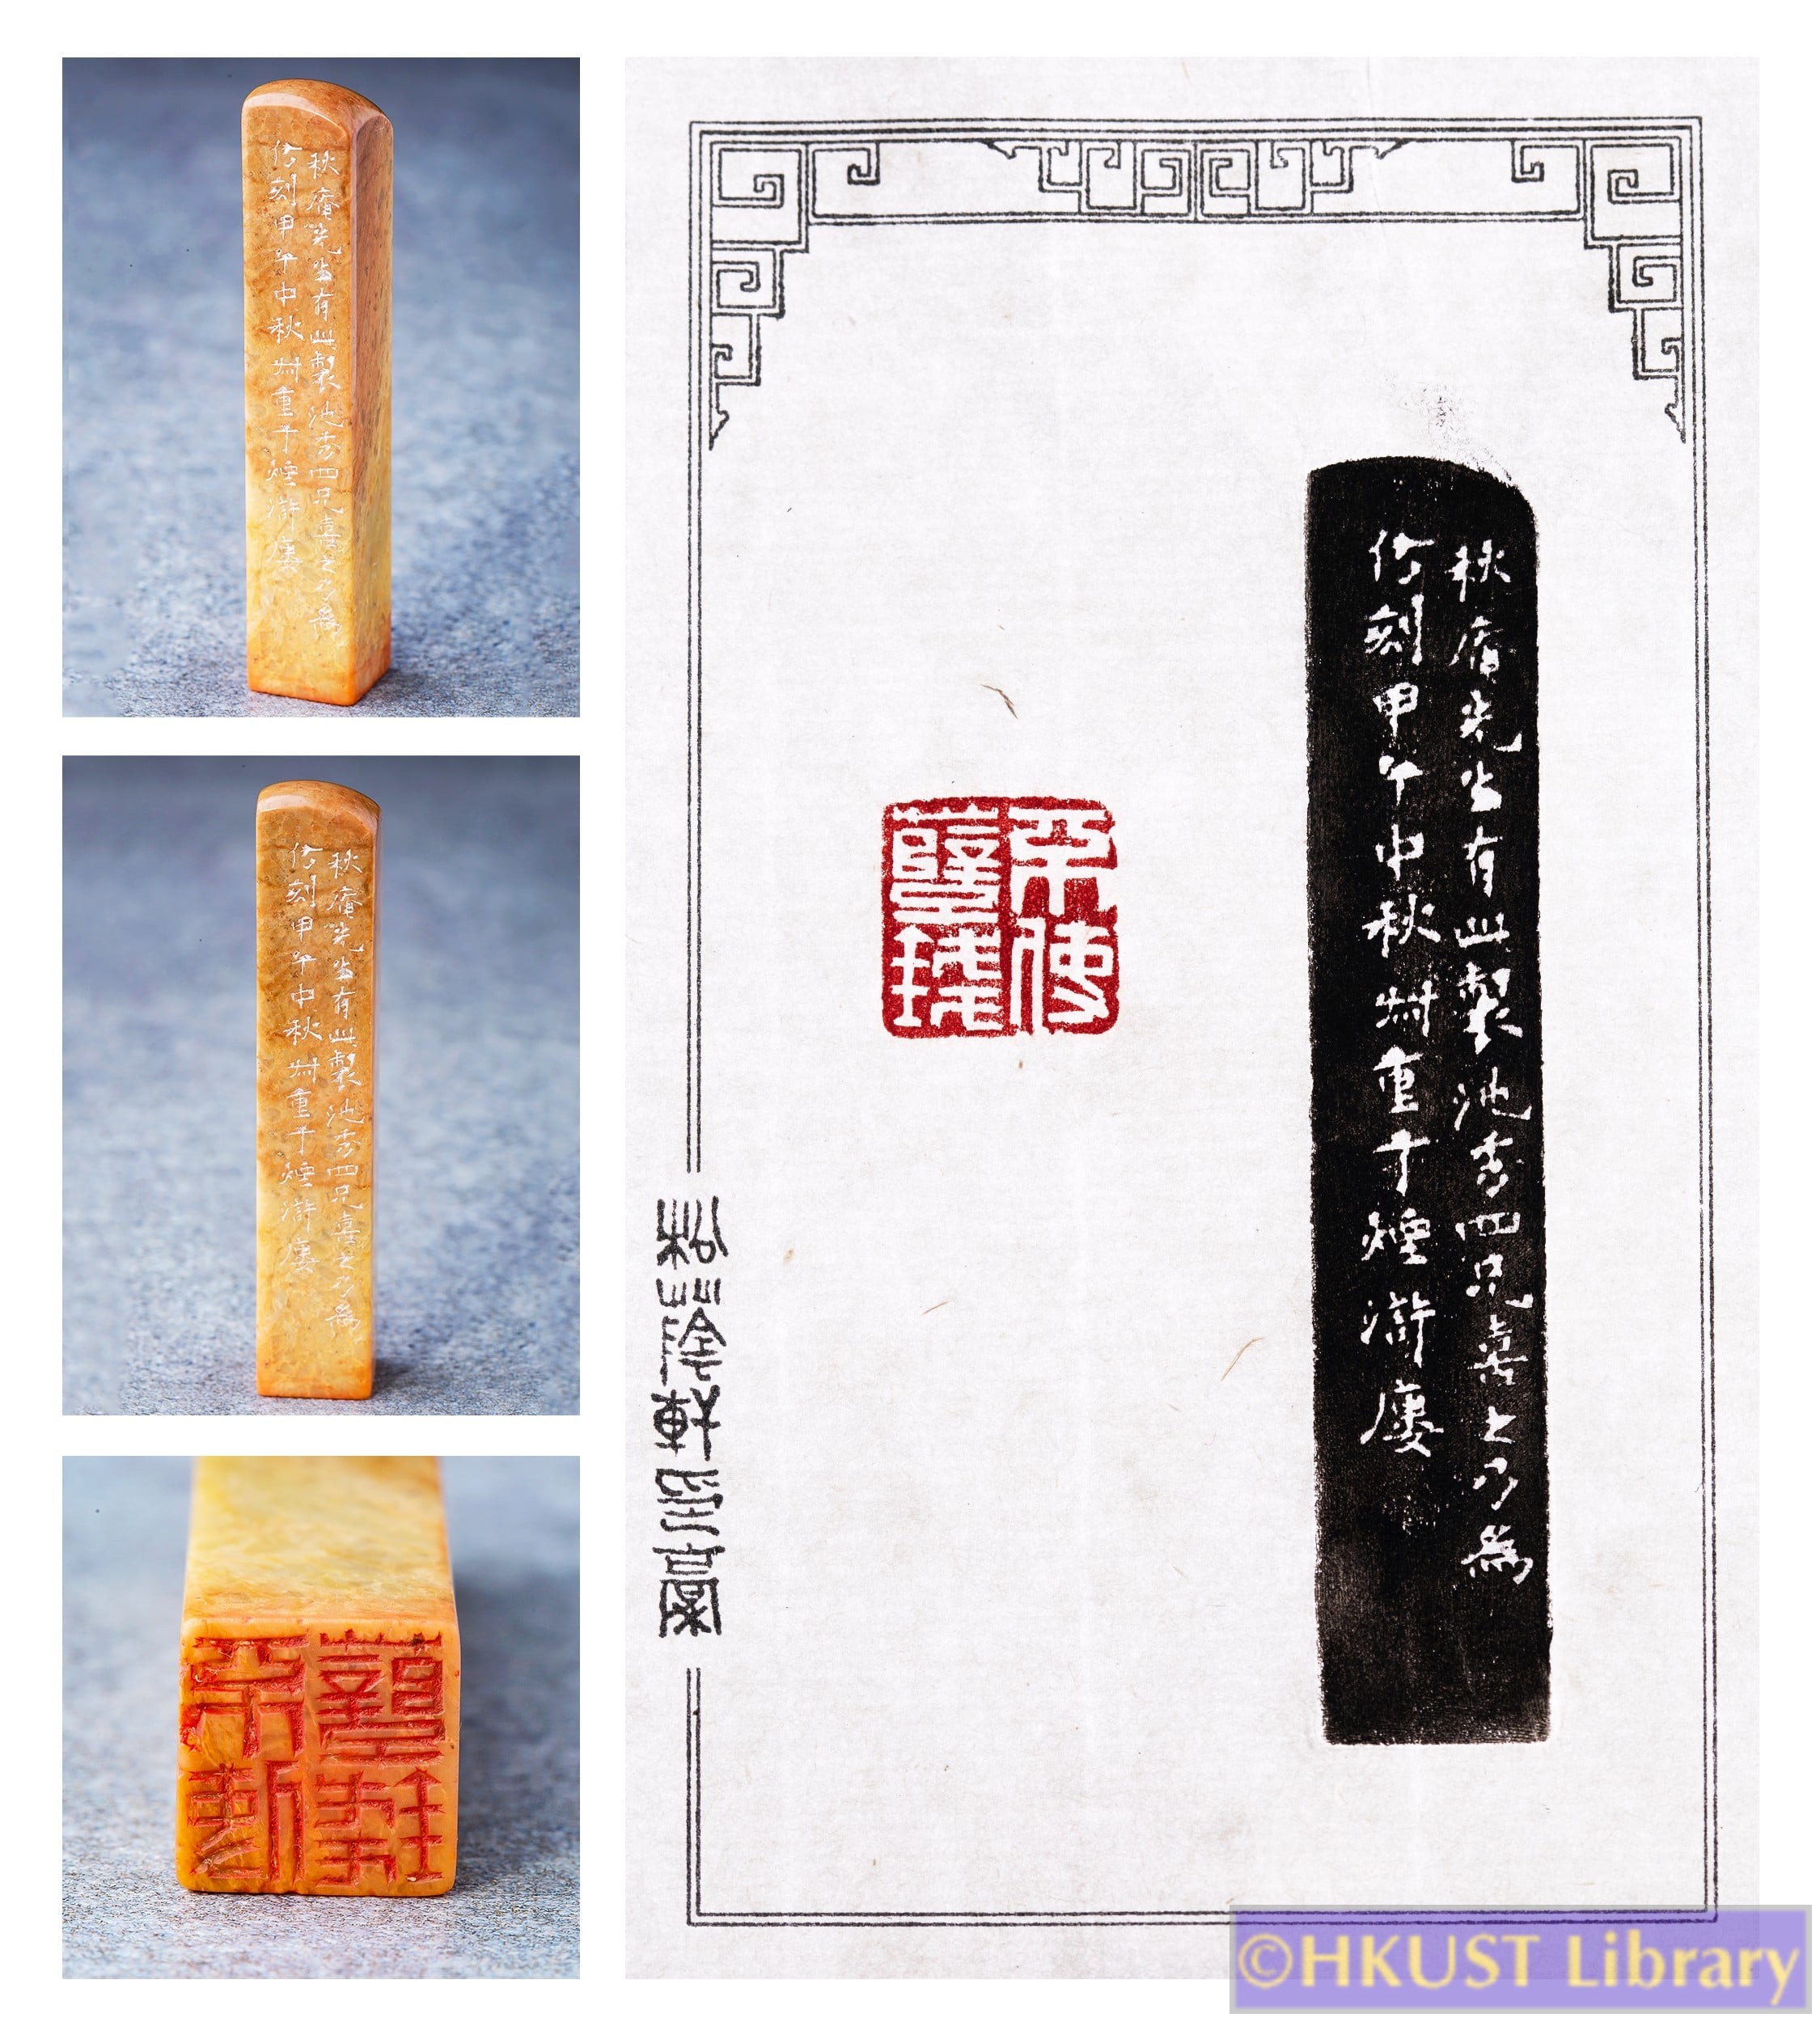 秋庵先生有此製池香四兄喜之乃為
仿刻甲午中秋叔重于煙滸廔
秋庵先生有此製池香四兄喜之乃為
仿刻甲午中秋叔重于煙滸廔
秋庵先生有此製池香四兄喜之乃為
仿刻甲午中秋叔重于煙滸廔
松蔭軒印稾
©HKUST Library